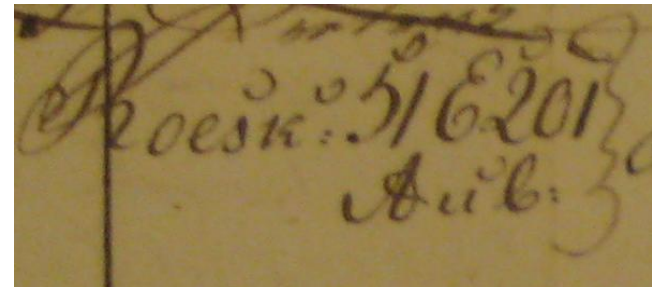 Roesk: 51 E 201
Aub: